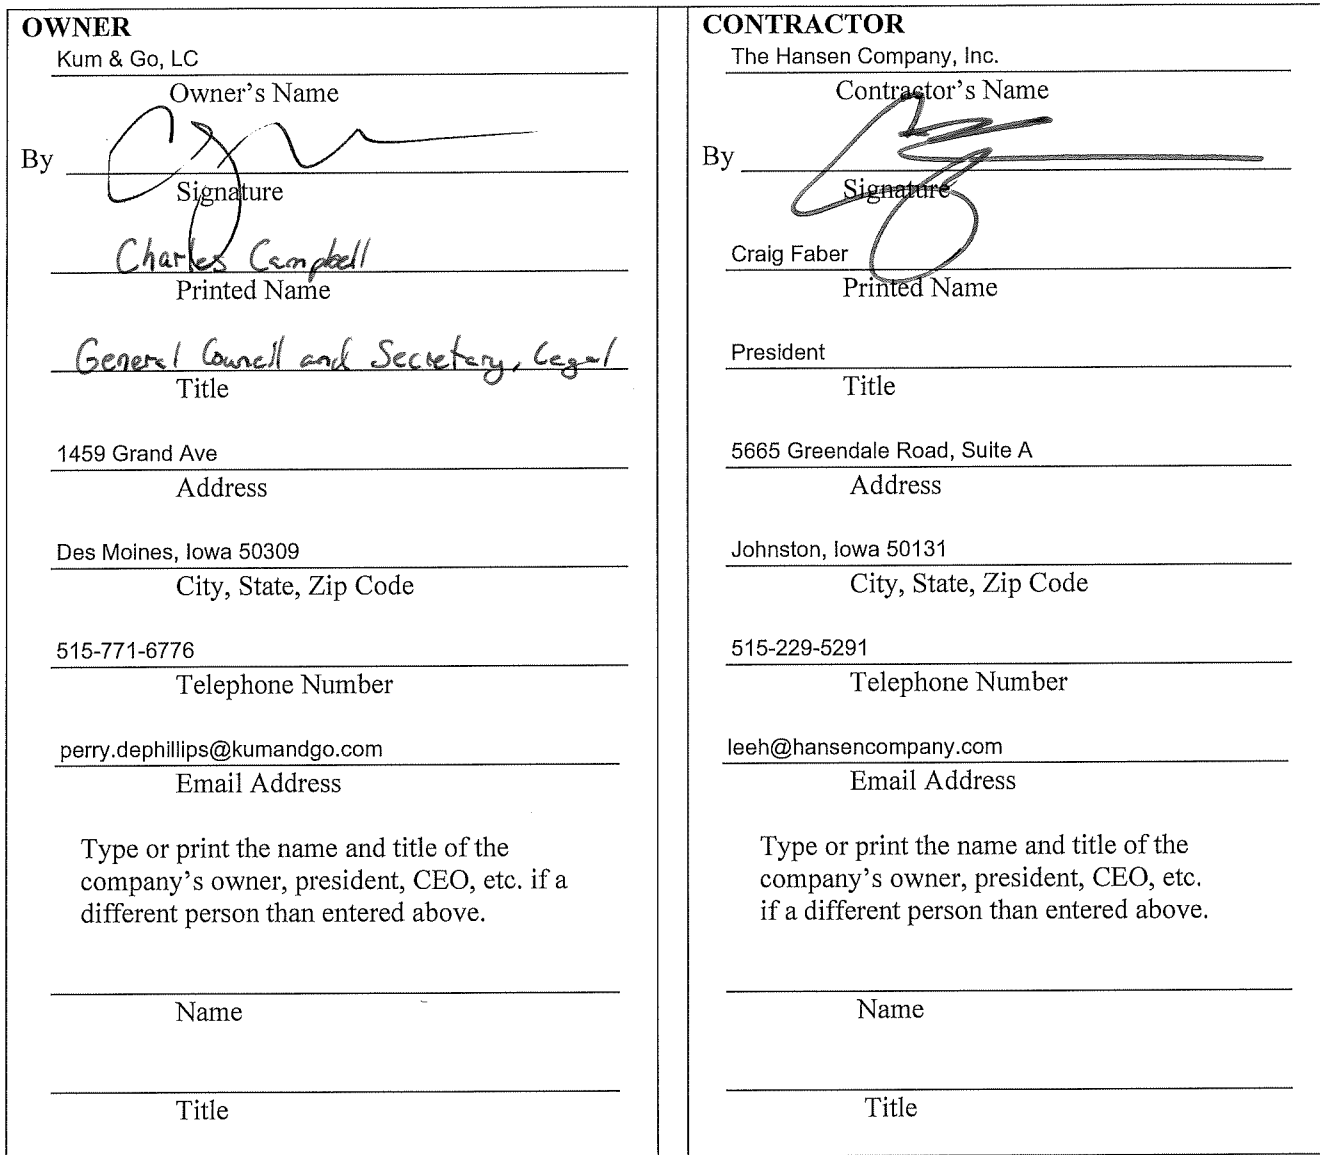 OWNER
Kum & Go, LC
Owner's Name
By
Signature
Charles Campbell
Printed Name
General Councll and Secretary, Legal
Title
1459 Grand Ave
Address
Des Moines, Iowa 50309
City, State, Zip Code
515-771-6776
Telephone Number
perry.dephillips@kumandgo.com
Email Address
Type or print the name and title of the
company's owner, president, CEO, etc. if a
different person than entered above.
Name
Title
CONTRACTOR
The Hansen Company, Inc.
Contractor's Name
By
Signature
Craig Faber
Printed Name
President
Title
5665 Greendale Road, Suite A
Address
Johnston, Iowa 50131
City, State, Zip Code
515-229-5291
Telephone Number
leeh@hansencompany.com
Email Address
Type or print the name and title of the
company's owner, president, CEO, etc.
if a different person than entered above.
Name
Title